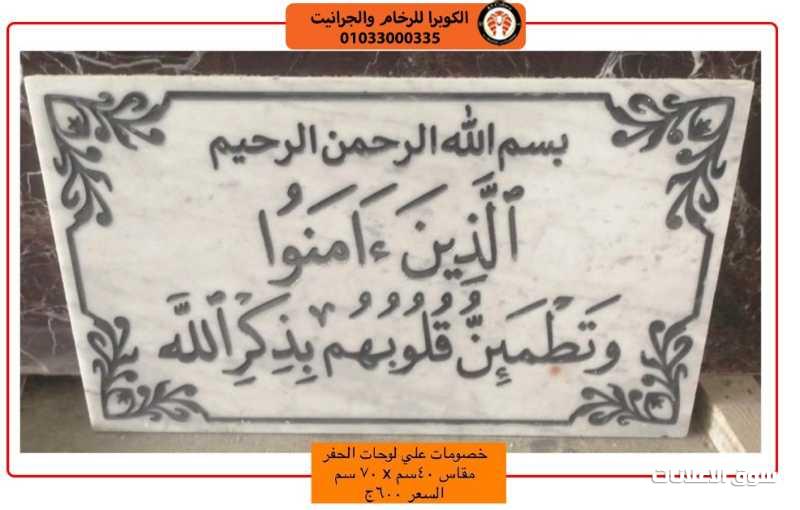 الكوبرا للرخام والجرانيت
01033000335
بسم الله الرحمن الرحيم
ٱلَّذِينَ ءَامَنُوا
وَتَطْمَئِنُّ قُلُوبُهُم بِذِكْرِ ٱللَّه
خصومات علي لوحات الحفر
مقاس ٤٠سم x ٧٠ سم
السعر ٦٠٠ج
سوق الاعلانات